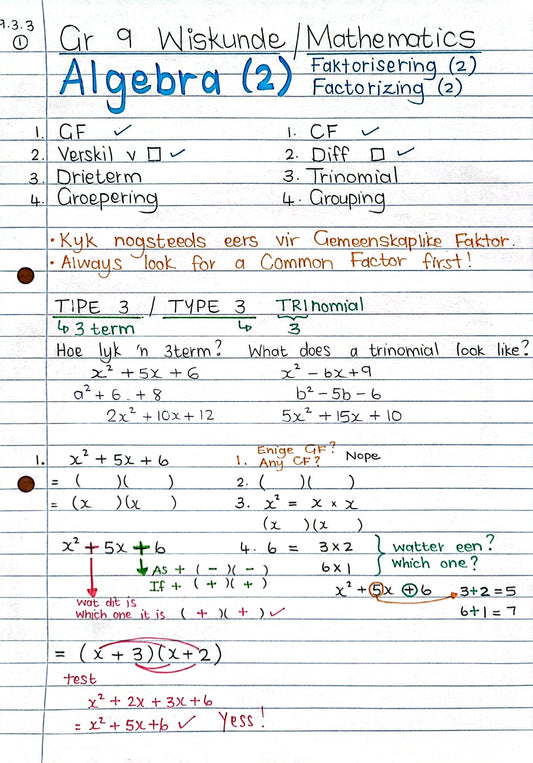 9.3.3
①
Gr 9 Wiskunde/Mathematics
Algebra (2) Faktorisering (2)
Factorizing (2)
1. GF ✓ 1. CF ✓
2. Verskil v □ ✓ 2. Diff □ ✓
3. Drieterm 3. Trinomial
4. Groepering 4. Grouping
• Kyk nogsteeds eers vir Gemeenskaplike Faktor.
• Always look for a Common Factor first!
TIPE 3 / TYPE 3 TRInomial
↳ 3 term ↳ 3
Hoe lyk 'n 3term? What does a trinomial look like?
x² + 5x + 6 x² - 6x + 9
a² + 6 . + 8 b² - 5b - 6
2x² + 10x + 12 5x² + 15x + 10
1. x² + 5x + 6 1. Enige GF? Nope
Any CF?
= ( )( ) 2. ( )( )
= (x )(x ) 3. x² = x × x
(x )(x )
x² + 5x + 6 4. 6 = 3×2 } watter een?
6×1 which one?
As + (-)(-)
If + (+)(+)
x² + 5x + 6 3+2=5
6+1=7
wat dit is
which one it is (+)(+) ✓
= (x + 3)(x + 2)
test
x² + 2x + 3x + 6
= x² + 5x + 6 ✓ Yess!